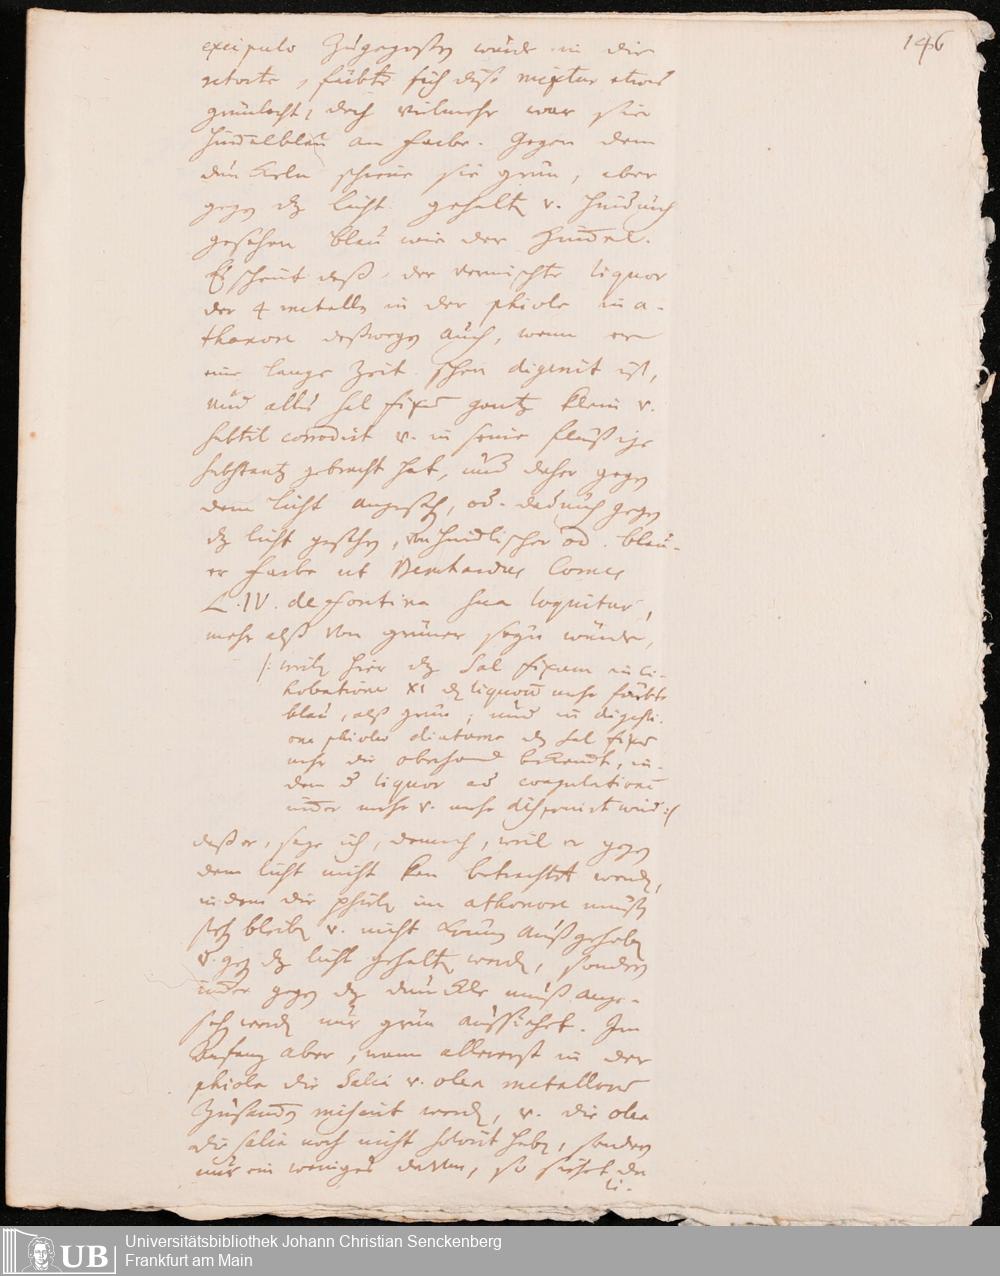 146
excipulo Zugegoßen würde in die
retorte, färbte sich diese mixtur etwas
grünlecht, doch vielmehr war sie
himelblau an farbe. Gegen dem
dunckeln schiene sie grün, aber
gegen dz licht gehalten v. hindurch
gesehen blau wie der Himel.
Es scheint daß der vermischte liquor
der 4 metallen in der phiole in a-
thanore deßwegen auch, wenn er
eine lange Zeit schon digerirt ist,
und alles sal fixum gantz klein v.
subtil corrodirt v. in seine flüßige
substantz gebracht hat, und daher gegen
dem licht angesehen, od. dadurch gegen
dz licht gesehen, von himlischer od. blau-
er farbe ut Bernhardus Comes
L. IV. de fontina sua loquitur,
mehr alß von grüner seyn würde,
/: weil hier dz Sal fixum in li-
hobatione XI den liquorem mehr färbte
blau, alß grün; und in digesti-
one phiolae diuturna dz Sal fixum
mehr die oberhand bekomt, in-
dem der liquor ad coagulationem
imer mehr v. mehr disponirt wird :/
daß er, sage ich, dennoch, weil er gegen
dem licht nicht kan betrachtet werden,
indem die phiole im athanore muß
stets bleiben v. nicht kan außgehoben
v. gegen dz licht gehalten werden, sondern
imer gegen dz dunckle muß ange-
sehen werden nur grün aussiehet. Im
Anfang aber, wann allererst in der
phiole die Salia v. olea metallorum
Zusamen mischirt werden, v. die olea
die salia noch nicht solvirt haben, sondern
nur ein weniges davon, so siehet der
li-
Universitätsbibliothek Johann Christian Senckenberg
Frankfurt am Main
UB